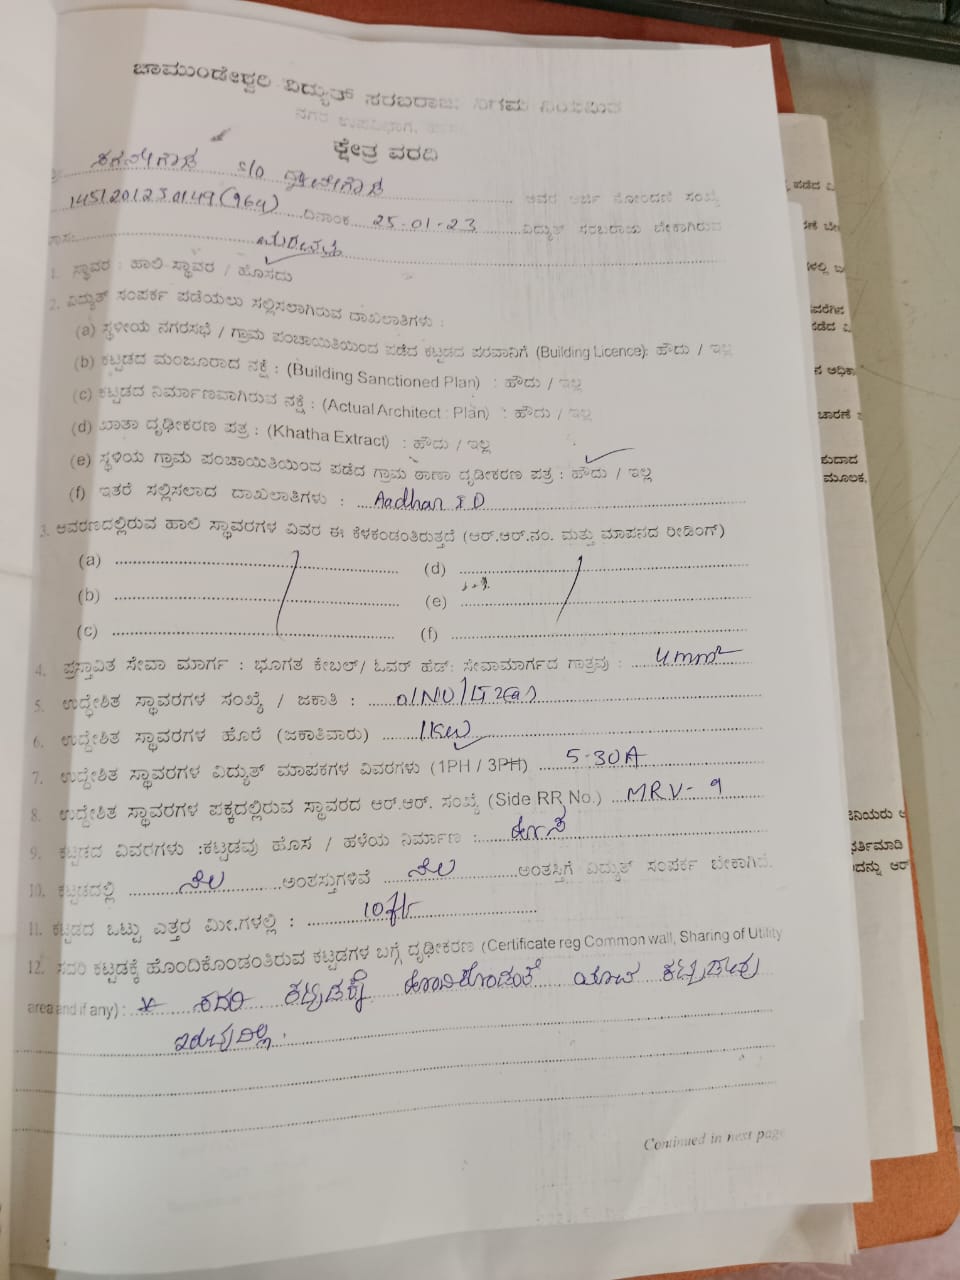 ಚಾಮುಂಡೇಶ್ವರಿ ವಿದ್ಯುತ್ ಸರಬರಾಜು ನಿಗಮ ನಿಯಮಿತ
ನಗರ ಉಪವಿಭಾಗ,
ಕ್ಷೇತ್ರ ವರದಿ
S/o
1451201230149(964) ದಿನಾಂಕ 25-01-23 ವಿದ್ಯುತ್ ಸರಬರಾಜು ಬೇಕಾಗಿರುವ
1. ಸ್ಥಾವರ : ಹಾಲಿ ಸ್ಥಾವರ / ಹೊಸದು
2. ವಿದ್ಯುತ್ ಸಂಪರ್ಕ ಪಡೆಯಲು ಸಲ್ಲಿಸಲಾಗಿರುವ ದಾಖಲಾತಿಗಳು :
(a) ಸ್ಥಳೀಯ ನಗರಸಭೆ / ಗ್ರಾಮ ಪಂಚಾಯಿತಿಯಿಂದ ಪಡೆದ ಕಟ್ಟಡದ ಪರವಾನಿಗೆ (Building Licence): ಹೌದು / ಇಲ್ಲ
(b) ಕಟ್ಟಡದ ಮಂಜೂರಾದ ನಕ್ಷೆ : (Building Sanctioned Plan) : ಹೌದು / ಇಲ್ಲ
(c) ಕಟ್ಟಡದ ನಿರ್ಮಾಣವಾಗಿರುವ ನಕ್ಷೆ : (Actual Architect : Plan) : ಹೌದು / ಇಲ್ಲ
(d) ಖಾತಾ ದೃಢೀಕರಣ ಪತ್ರ : (Khatha Extract) : ಹೌದು / ಇಲ್ಲ
(e) ಸ್ಥಳೀಯ ಗ್ರಾಮ ಪಂಚಾಯಿತಿಯಿಂದ ಪಡೆದ ಗ್ರಾಮ ಠಾಣಾ ದೃಢೀಕರಣ ಪತ್ರ : ಹೌದು / ಇಲ್ಲ
(f) ಇತರೆ ಸಲ್ಲಿಸಲಾದ ದಾಖಲಾತಿಗಳು : Aadhar ID
3. ಆವರಣದಲ್ಲಿರುವ ಹಾಲಿ ಸ್ಥಾವರಗಳ ವಿವರ ಈ ಕೆಳಕಂಡಂತಿರುತ್ತದೆ (ಆರ್.ಆರ್.ನಂ. ಮತ್ತು ಮಾಪನದ ರೀಡಿಂಗ್)
(a) (d)
(b) (e)
(c) (f)
4. ಪ್ರಸ್ತಾವಿತ ಸೇವಾ ಮಾರ್ಗ : ಭೂಗತ ಕೇಬಲ್/ ಓವರ್ ಹೆಡ್: ಸೇವಾಮಾರ್ಗದ ಗಾತ್ರವು : 4mm²
5. ಉದ್ದೇಶಿತ ಸ್ಥಾವರಗಳ ಸಂಖ್ಯೆ / ಜಕಾತಿ :
6. ಉದ್ದೇಶಿತ ಸ್ಥಾವರಗಳ ಹೊರೆ (ಜಕಾತಿವಾರು) 1Kw
7. ಉದ್ದೇಶಿತ ಸ್ಥಾವರಗಳ ವಿದ್ಯುತ್ ಮಾಪಕಗಳ ವಿವರಗಳು (1PH / 3PH) 5-30A
8. ಉದ್ದೇಶಿತ ಸ್ಥಾವರಗಳ ಪಕ್ಕದಲ್ಲಿರುವ ಸ್ಥಾವರದ ಆರ್.ಆರ್. ಸಂಖ್ಯೆ (Side RR No.) MRV-9
9. ಕಟ್ಟಡದ ವಿವರಗಳು :ಕಟ್ಟಡವು ಹೊಸ / ಹಳೆಯ ನಿರ್ಮಾಣ : ಹೊಸ
10. ಕಟ್ಟಡದಲ್ಲಿ ನೆಲ ಅಂತಸ್ತುಗಳಿವೆ ನೆಲ ಅಂತಸ್ತಿಗೆ ವಿದ್ಯುತ್ ಸಂಪರ್ಕ ಬೇಕಾಗಿದೆ.
11. ಕಟ್ಟಡದ ಒಟ್ಟು ಎತ್ತರ ಮೀ.ಗಳಲ್ಲಿ : 10ft
12. ಸದರಿ ಕಟ್ಟಡಕ್ಕೆ ಹೊಂದಿಕೊಂಡಂತಿರುವ ಕಟ್ಟಡಗಳ ಬಗ್ಗೆ ದೃಢೀಕರಣ (Certificate reg Common wall, Sharing of Utility
area and if any) : ಸದರಿ ಕಟ್ಟಡಕ್ಕೆ ಹೊಂದಿಕೊಂಡಂತೆ ಯಾವ ಕಟ್ಟಡಗಳು
ಇರುವುದಿಲ್ಲ.
Continued in next page